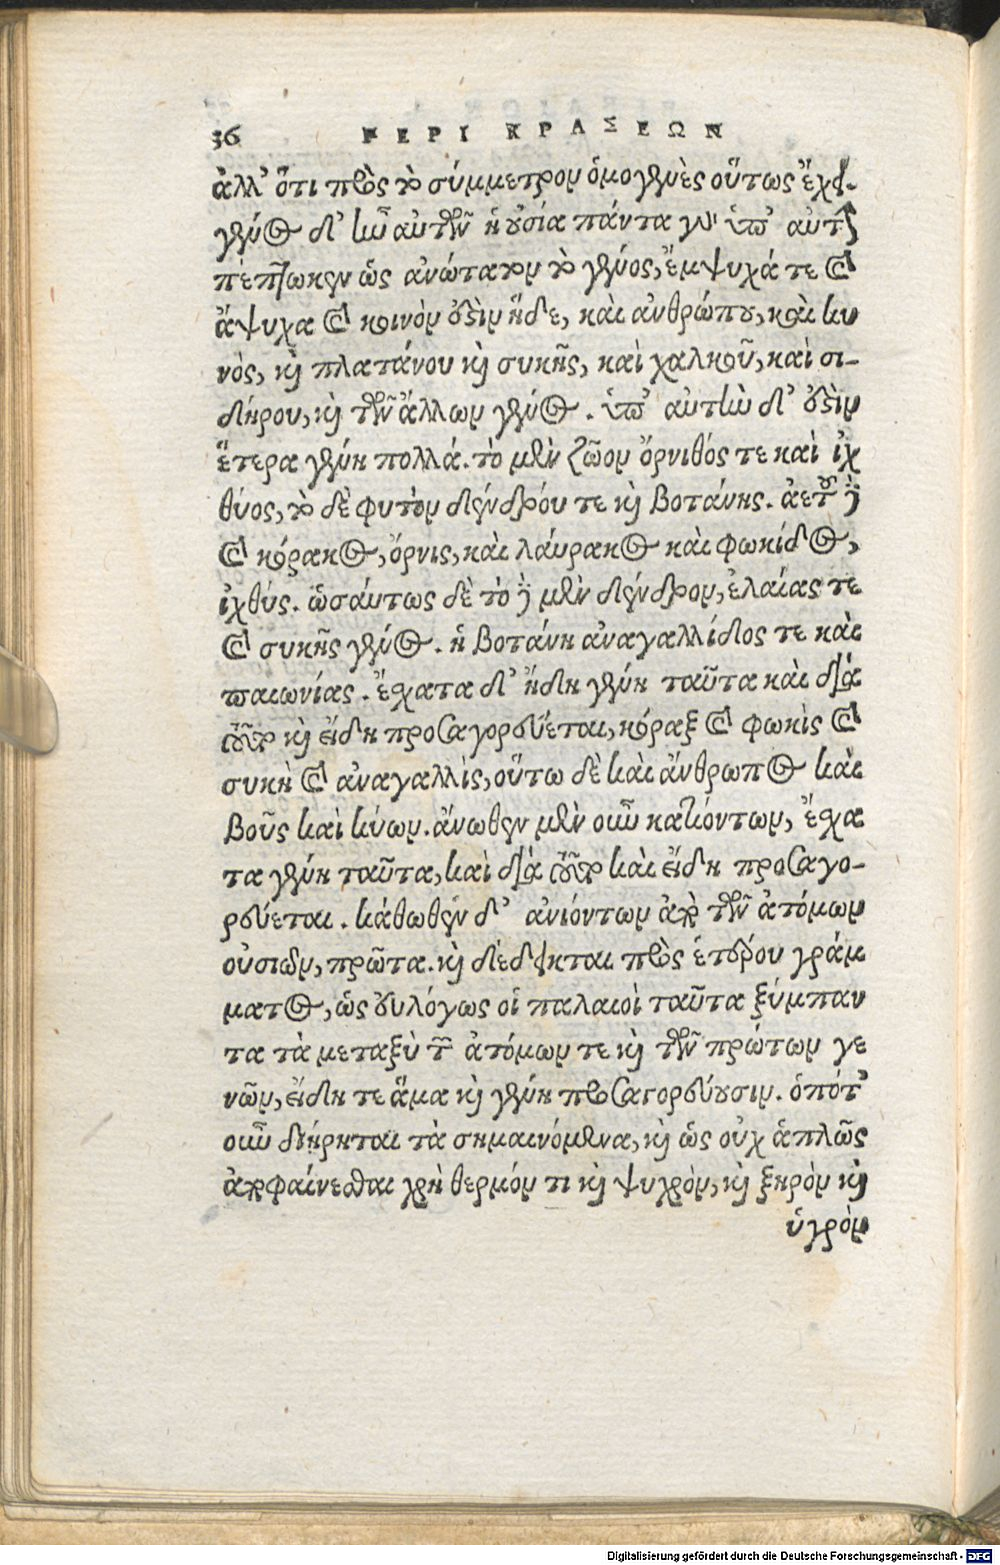 36 ΠΕΡΙ ΚΡΑΣΕΩΝ
ἀλλ' ὅτι πρὸς τὸ σύμμετρον ὁμογενὲς οὕτως ἔχει.
γένος δ' ἦν αὐτῶν ἡ οὐσία πάντα γὰρ ὑπ' αὐτὴν
πέπτωκεν ὡς ἀνώτατον τὸ γένος, ἔμψυχά τε καὶ
ἄψυχα καὶ κοινὸν οὖσιν ἥδε, καὶ ἀνθρώπου, καὶ κυ
νὸς, καὶ πλατάνου καὶ συκῆς, καὶ χαλκοῦ, καὶ σι-
δήρου, καὶ τῶν ἄλλων γένος. ὑπ' αὐτὴν δ' οὖσιν
ἕτερα γένη πολλά. τὸ μὲν ζῶον ὄρνιθός τε καὶ ἰχ
θύος, τὸ δὲ φυτὸν δένδρου τε καὶ βοτάνης. ἀετοῦ δὲ
καὶ κόρακος, ὄρνις, καὶ λάυρακος καὶ φωκίδος,
ἰχθύς. ὡσάυτως δὲ τὸ δὲ μὲν δένδρον, ἐλαίας τε
καὶ συκῆς γένος. ἡ βοτάνη ἀναγαλλίδος τε καὶ
παιωνίας. ἔσχατα δ' ἤδη γένη ταῦτα καὶ διὰ
τοῦτο καὶ εἴδη προσαγορεύεται, κόραξ καὶ φωκὶς καὶ
συκὴ καὶ ἀναγαλλὶς, οὕτω δὲ καὶ ἄνθρωπος καὶ
βοῦς καὶ κύων. ἄνωθεν μὲν οὖν κατιόντων, ἔσχα
τα γένη ταῦτα, καὶ διὰ τοῦτο καὶ εἴδη προσαγο-
ρεύεται. κάθωθεν δ' ἀνιόντων ἀπὸ τῶν ἀτόμων
οὐσιῶν, πρῶτα. καὶ δέδεικται πρὸς ἑτέρου γράμ
ματος, ὡς εὐλόγως οἱ παλαιοὶ ταῦτα ξύμπαν
τα τὰ μεταξὺ τῶν ἀτόμων τε καὶ τῶν πρώτων γε
νῶν, εἴδη τε ἅμα καὶ γένη προσαγορεύουσιν. ὁπότ'
οὖν διῄρηται τὰ σημαινόμενα, καὶ ὡς οὐχ ἁπλῶς
ἀποφαίνεσθαι χρὴ θερμόν τι καὶ ψυχρὸν, καὶ ξηρὸν καὶ
ὑγρὸν